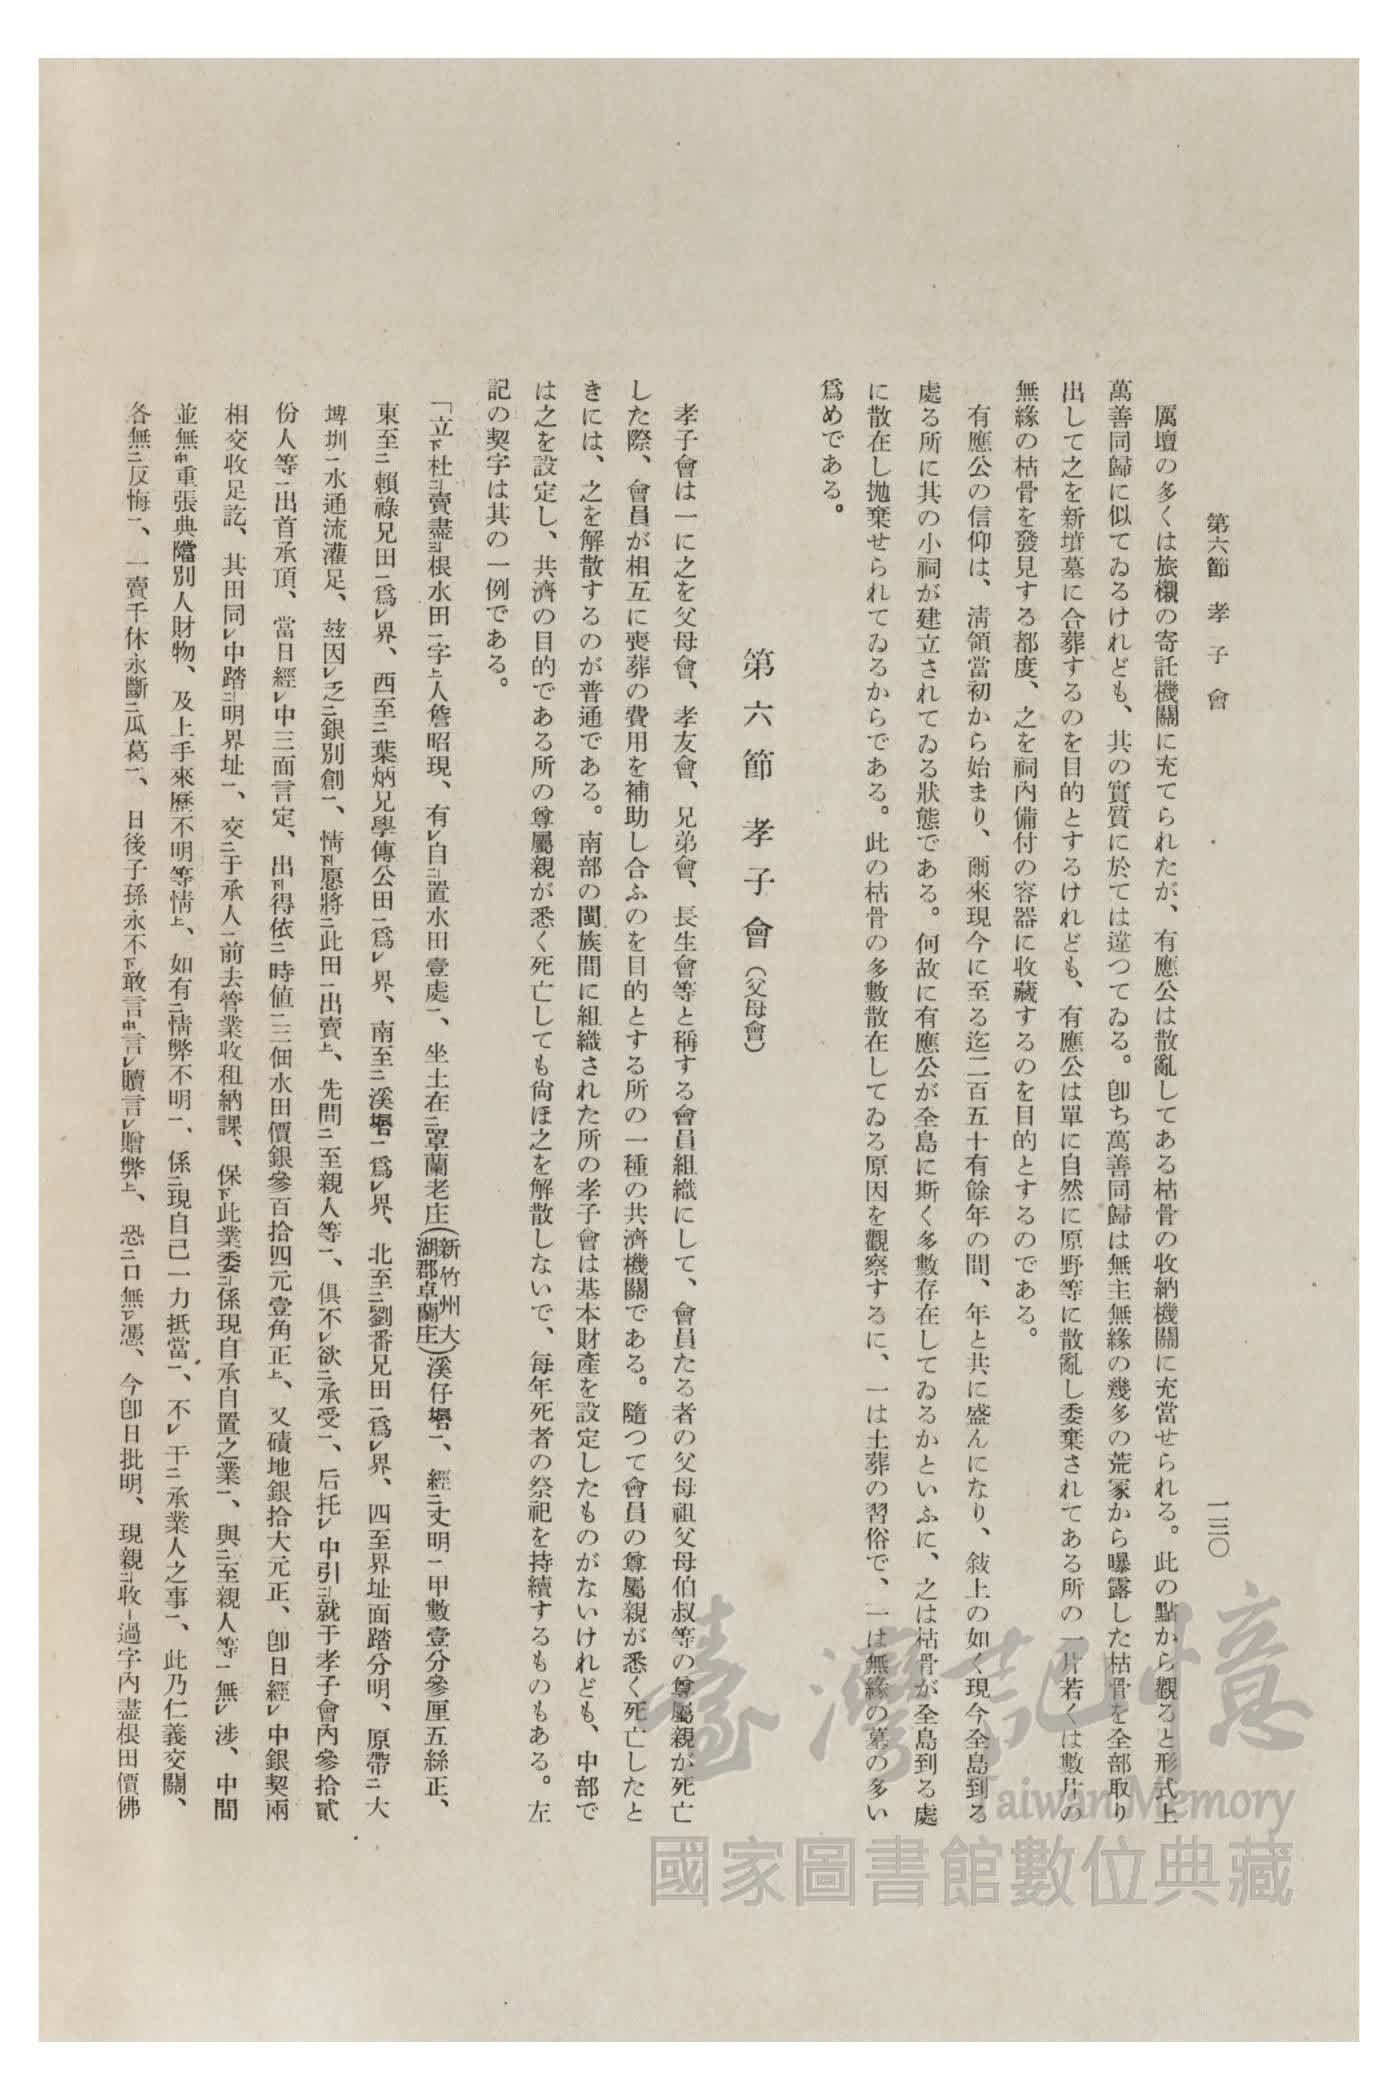 第六節 孝子會
一三〇
厲壇の多くは旅櫬の寄託機關に充てられたが、有應公は散亂してある枯骨の收納機關に充當せられる。此の點から觀ると形式上
萬善同歸に似てゐるけれども、其の實質に於ては違つてゐる。卽ち萬善同歸は無主無緣の幾多の荒冢から曝露した枯骨を全部取り
出して之を新墳墓に合葬するのを目的とするけれども、有應公は單に自然に原野等に散亂し委棄されてある所の一片若くは數片の
無緣の枯骨を發見する都度、之を祠內備付の容器に收藏するのを目的とするのである。
有應公の信仰は、淸領當初から始まり、爾來現今に至る迄二百五十有餘年の間、年と共に盛んになり、敍上の如く現今全島到る
處る所に其の小祠が建立されてゐる狀態である。何故に有應公が全島に斯く多數存在してゐるかといふに、之は枯骨が全島到る處
に散在し拋棄せられてゐるからである。此の枯骨の多數散在してゐる原因を觀察するに、一は土葬の習俗で、一は無緣の墓の多い
爲めである。
第六節 孝子會(父母會)
孝子會は一に之を父母會、孝友會、兄弟會、長生會等と稱する會員組織にして、會員たる者の父母祖父母伯叔等の尊屬親が死亡
した際、會員が相互に喪葬の費用を補助し合ふのを目的とする所の一種の共濟機關である。隨つて會員の尊屬親が悉く死亡したと
きには、之を解散するのが普通である。南部の閩族間に組織された所の孝子會は基本財產を設定したものがないけれども、中部で
は之を設定し、共濟の目的である所の尊屬親が悉く死亡しても尙ほ之を解散しないで、每年死者の祭祀を持續するものもある。左
記の契字は其の一例である。
「立下杜二賣盡三根水田一字上人詹昭現、有レ自二置水田壹處一、坐土在二罩蘭老庄(新竹州大湖郡卓蘭庄)溪仔壩一、經二丈明一甲數壹分參厘五絲正、
東至二賴祿兄田一爲レ界、西至二葉炳兄學傳公田一爲レ界、南至二溪壩一爲レ界、北至二劉番兄田一爲レ界、四至界址面踏分明、原帶二大
埤圳一水通流灌足、玆因レ乏二銀別創一、情下愿將二此田一出賣上、先問二至親人等一、俱不レ欲二承受一、后托レ中引三就于孝子會內參拾貳
份人等一出首承頂、當日經レ中三面言定、出下得依二時値一三佃水田價銀參百拾四元壹角正上、又磧地銀拾大元正、卽日經レ中銀契兩
相交收足訖、其田同レ中踏二明界址一、交二于承人一前去管業收租納課、保下此業委二係現自承自置之業一、與二至親人等一無レ涉、中間
並無中重張典當別人財物、及上手來歷不明等情上、如有二情弊不明一、係二現自己一力抵當一、不レ干二承業人之事一、此乃仁義交關、
各無二反悔一、一賣千休永斷二瓜葛一、日後子孫永不下敢言中言レ贖言レ贈弊上、恐二口無一レ憑、今卽日批明、現親二收一過字內盡根田價佛
臺灣記憶
Taiwan Memory
國家圖書館數位典藏